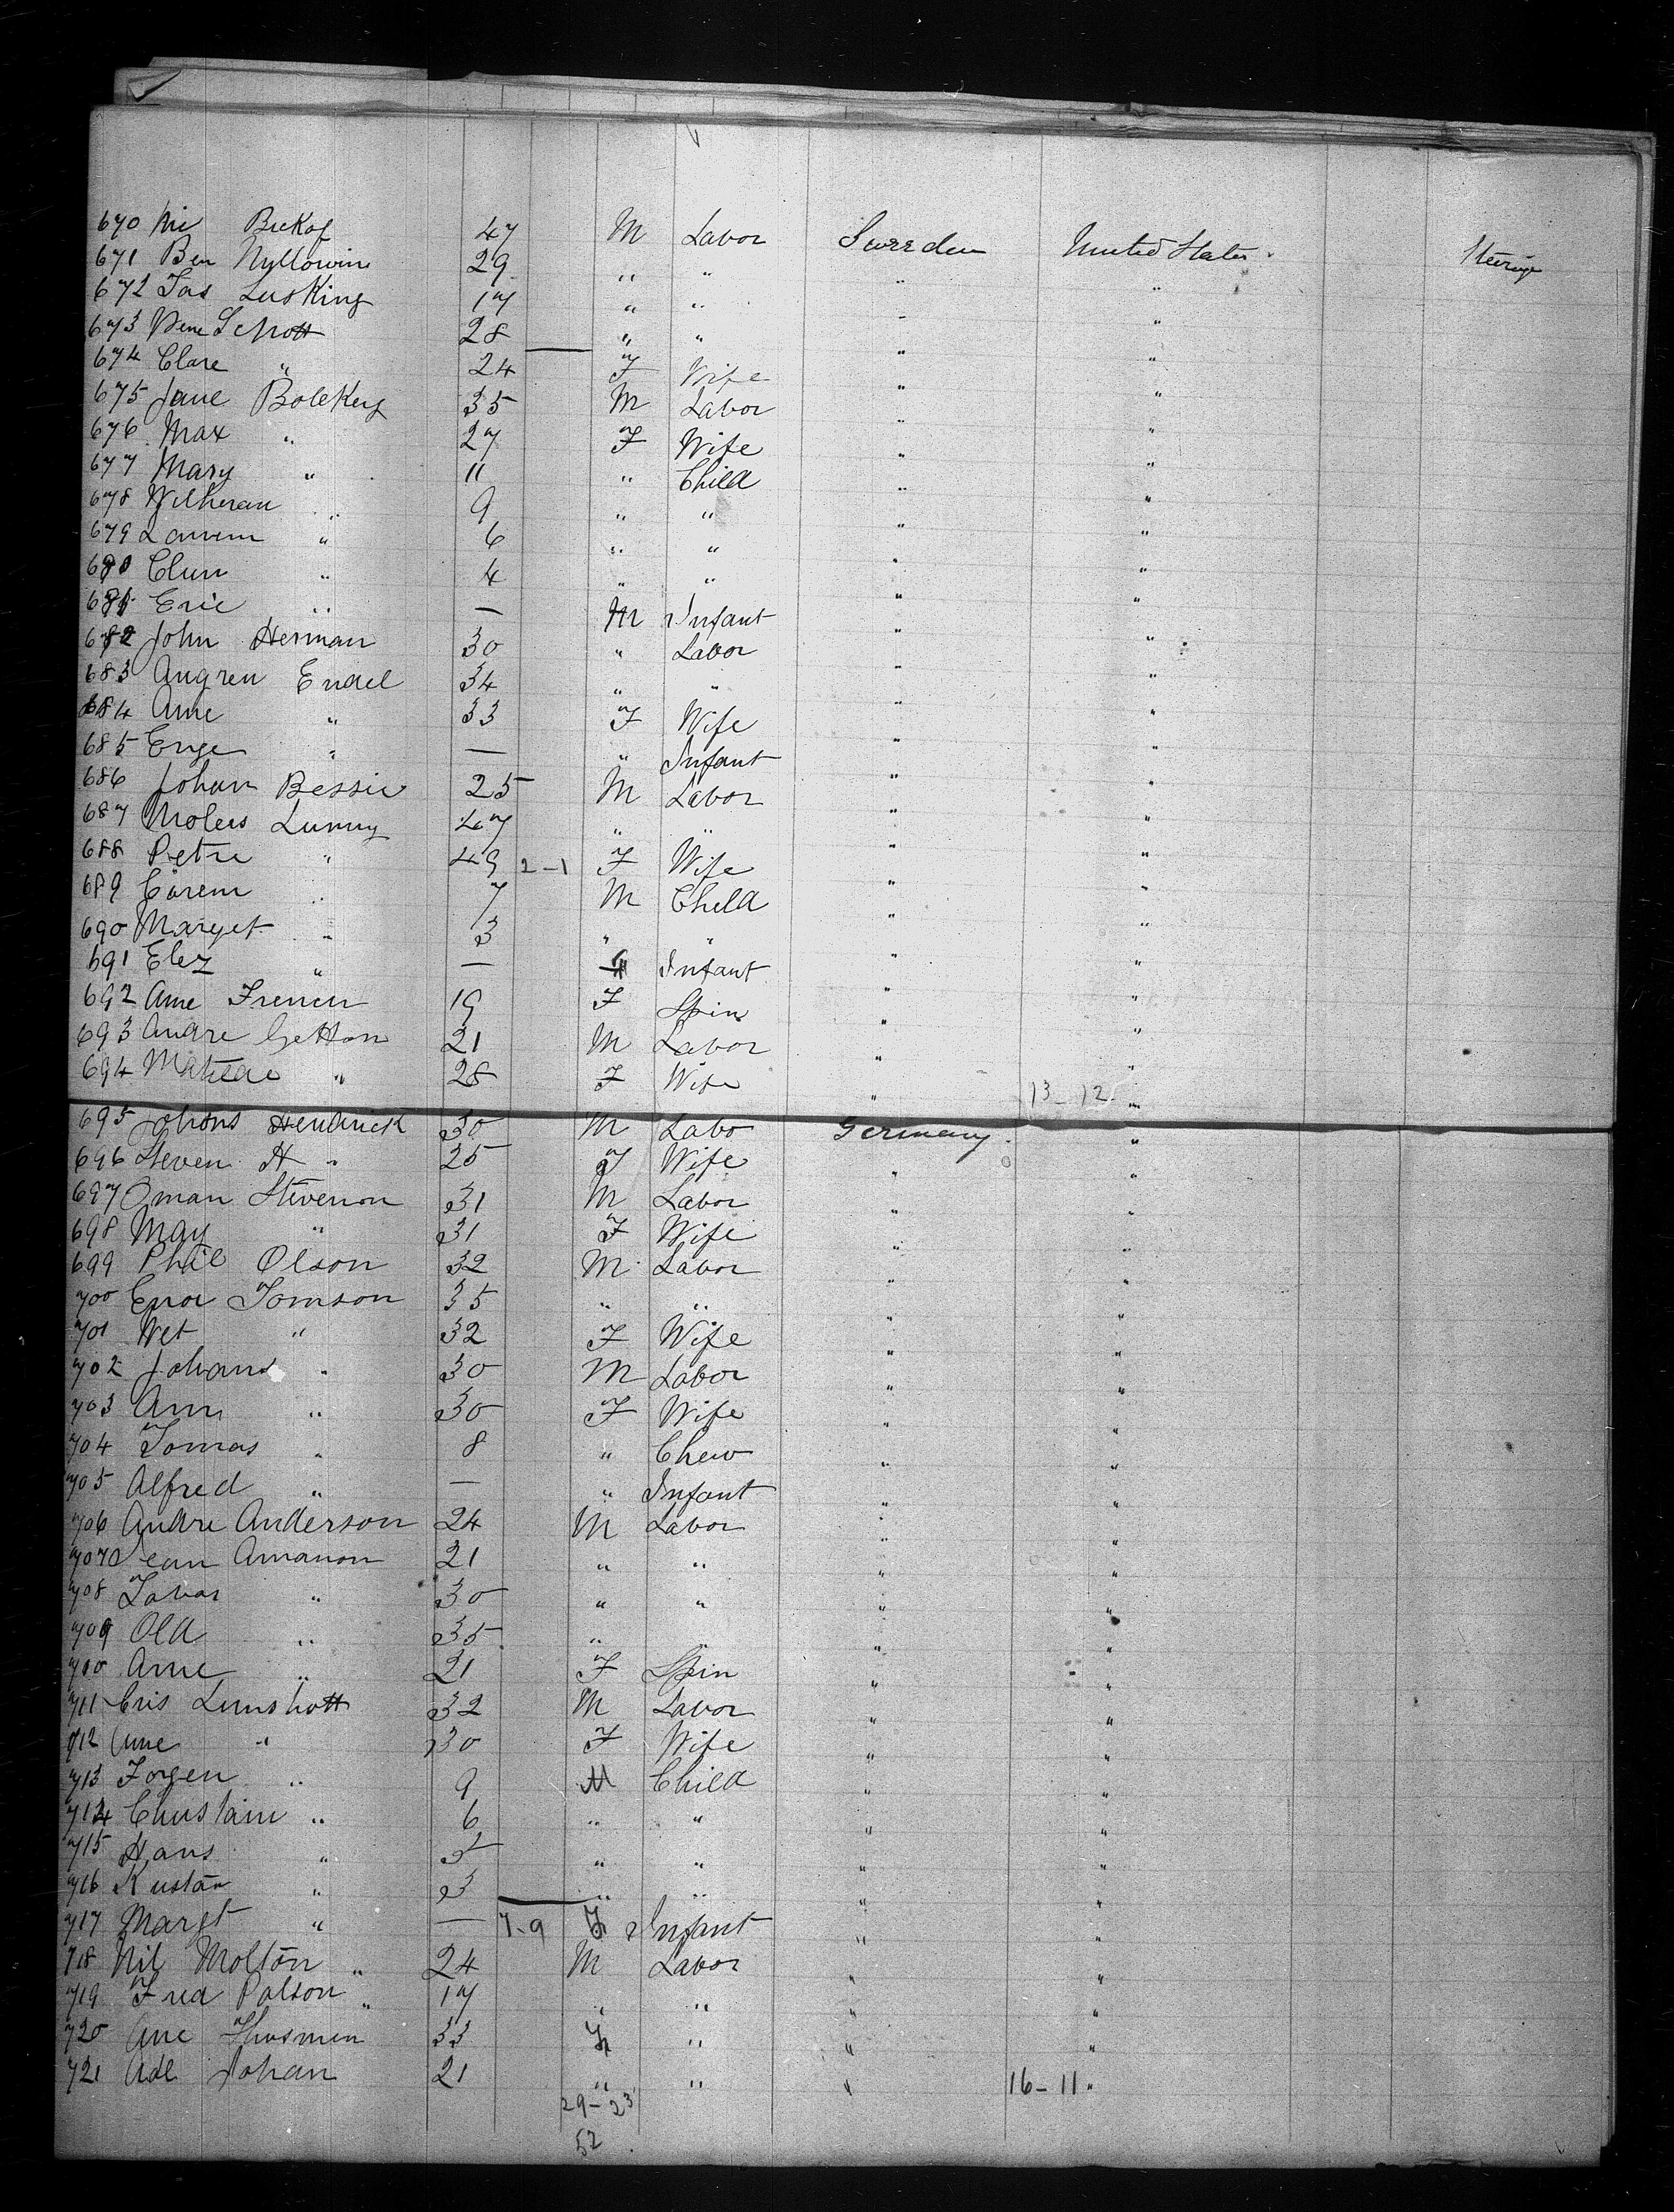 670 Bekof 47 M Labor Sweeden United States Steerige
671 Ben Nyllowin 29 " " " "
672 Jas Lusking 17 " " " "
673 Schott 28 " " " "
674 Clare " 24 F Wife " "
675 Jane Bolekey 35 M Labor " "
676 Max " 27 F Wife " "
677 Mary " 11 " Child " "
678 Wilheran " 9 " " " "
679 " 6 " " " "
680 Clun " 4 " " " "
681 Eric " — M Infant " "
682 John Herman 30 " Labor " "
683 Augren Endel 34 " " " "
684 Ame " 33 F Wife " "
685 Enge " — " Infant " "
686 Johan Bessie 25 M Labor " "
687 Moles Lunny 47 " " " "
688 Petre " 49 2-1 F Wife " "
689 Carem " 7 M Child " "
690 Marget " 3 " " " "
691 Elez " — Infant " "
692 Ame Frenen 19 F Spin " "
693 Andre Getton 21 M Labor " "
694 Matilde " 28 F Wife " 13-12 "
695 Johons Hendrick 30 M Labo Germany "
696 Steven H " 25 F Wife " "
697 Oman Stevenon 31 M Labor " "
698 May " 31 F Wife " "
699 Phil Olson 32 M Labor " "
700 Tomson 35 " " " "
701 Wet " 32 F Wife " "
702 Johans " 30 M Labor " "
703 Ann " 30 F Wife " "
704 Tomas " 8 " " "
705 Alfred " — " Infant " "
706 Andre Anderson 24 M Labor " "
707 Jean Amanon 21 " " " "
708 " 30 " " " "
709 Old " 35 " " " "
710 Ame " 21 F Spin " "
711 Cris Lunshott 32 M Labor " "
712 Ame " 30 F Wife " "
713 Jorgen " 9 M Child " "
714 Christain " 6 " " " "
715 Hans " 5 " " " "
716 Kustan " 3 " " " "
717 Margt " — 7-9 F Infant " "
718 Nil Molton " 24 M Labor " "
719 Fred Polson " 17 " " " "
720 Ane 33 F " " "
721 Ade Johan 21 " " " 16-11 "
29-23
52